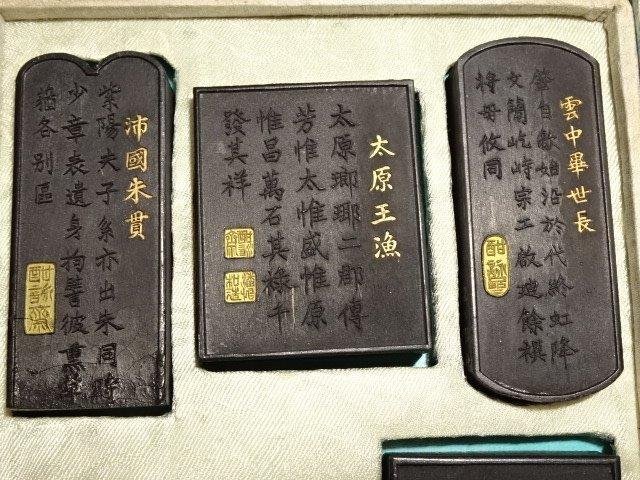 雲中畢世長
自敬始沿於代終虹降
文簡屹峙宗工啟迪餘禩
將毋攸同
太原王漁
太原瑯琊二郡傳
芳惟太惟盛惟原
惟昌萬石其祿千
發其祥
沛國朱貫
紫陽夫子系亦出朱同時
少章表遺身拘讐彼薰
猶各別區